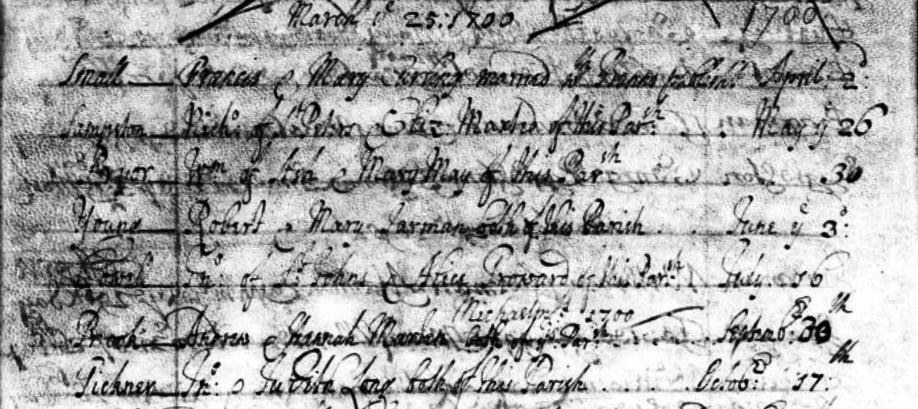 March ye 25: 1700 1700
Small Francis & Mary married April 2:
Sampson Richd. of St Peters & Eliz. Marted of this Parsh. . . May ye 26
Wm of Ash & Mary May of this Parsh . . . . 30
Young Robert & Mary Jarman both of this Parish . . June ye 3:
Jno. of St Johns & Alice of this Parsh. July 16
Michaelms 1700
Brook Andrew & Hannah both of ys Parsh Septembr: 30th
Tickner Jno. & Juditha Long both of this Parish . . . . Octobr: 17:th